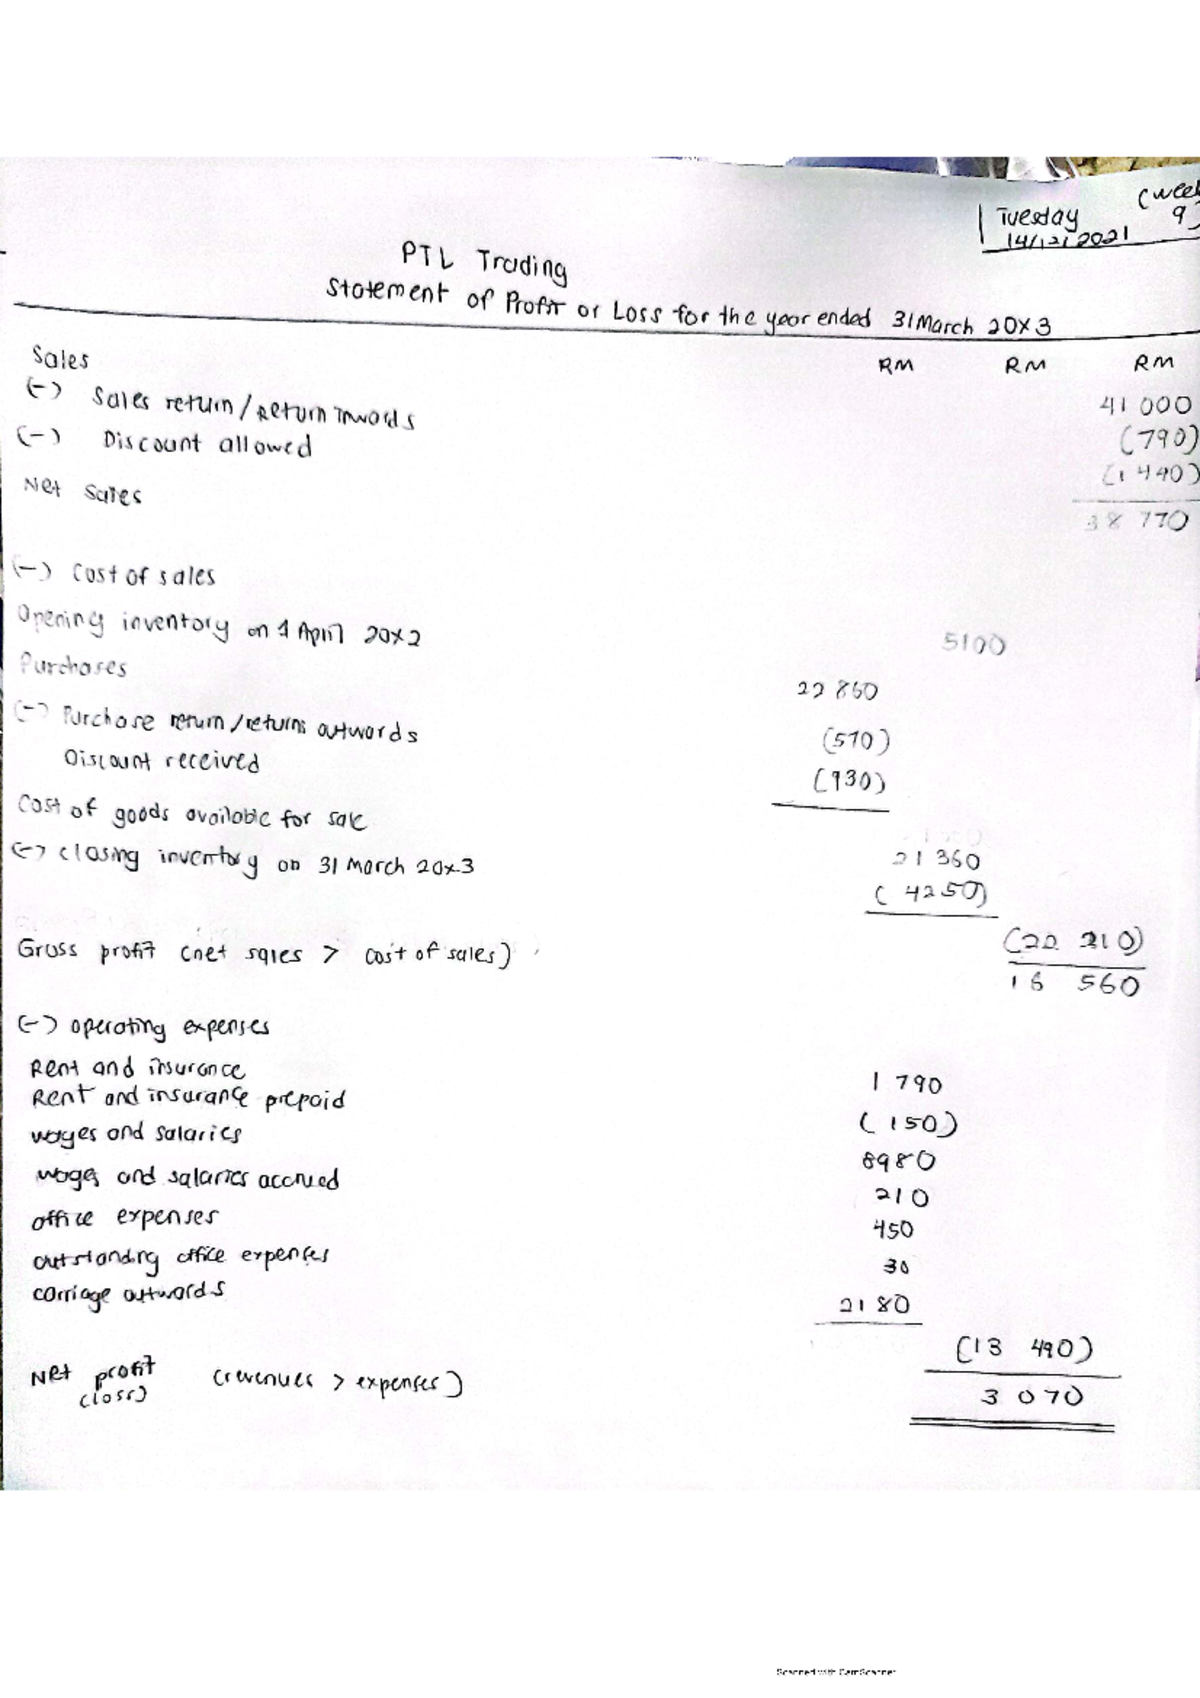 (week 9)
Tuesday
14/12/2021
PTL Trading
Statement of Profit or Loss for the year ended 31 March 20X3
RM RM RM
Sales 41 000
(-) Sales return/Return inwards (790)
(-) Discount allowed (1 440)
Net Sales 38 770
(-) Cost of sales
Opening inventory on 1 April 20X2 5100
Purchases 22 860
(-) Purchase return/returns outwards (570)
Discount received (930)
Cost of goods available for sale 21 360
(-) closing inventory on 31 March 20X3 (4250)
(22 210)
Gross profit (net sales > cost of sales) 16 560
(-) operating expenses
Rent and insurance 1 790
Rent and insurance prepaid (150)
wages and salaries 8980
wages and salaries accrued 210
office expenses 450
outstanding office expenses 30
carriage outwards 2180
(13 490)
Net profit (revenues > expenses) 3 070
(loss)
Scanned with CamScanner